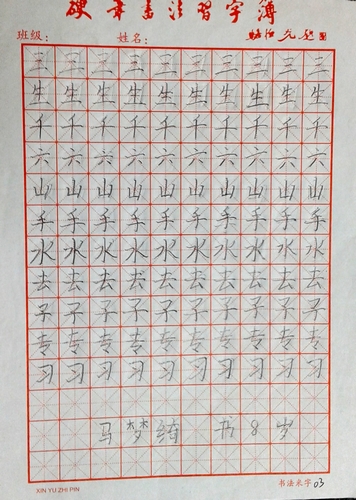 硬笔书法习字簿
班级： 姓名：
三三三三三三三三三三
生生生生生生生生生生
千千千千千千千千千千
六六六六六六六六六六
山山山山山山山山山山
手手手手手手手手手手
水水水水水水水水水水
去去去去去去去去去去
子子子子子子子子子子
专专专专专专专专专专
习习习习习习习习习习
马梦绮 书8岁
XIN YU ZHI PIN 书法米字03